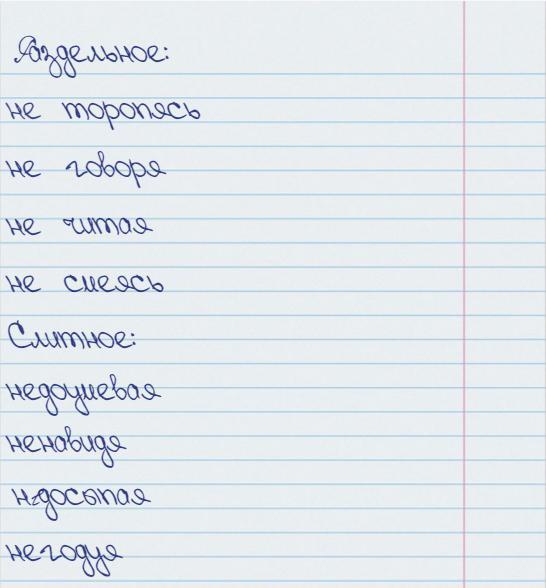 Раздельное:
не торопясь
не говоря
не читая
не смеясь
Слитное:
недоумевая
ненавидя
недосыпая
негодуя